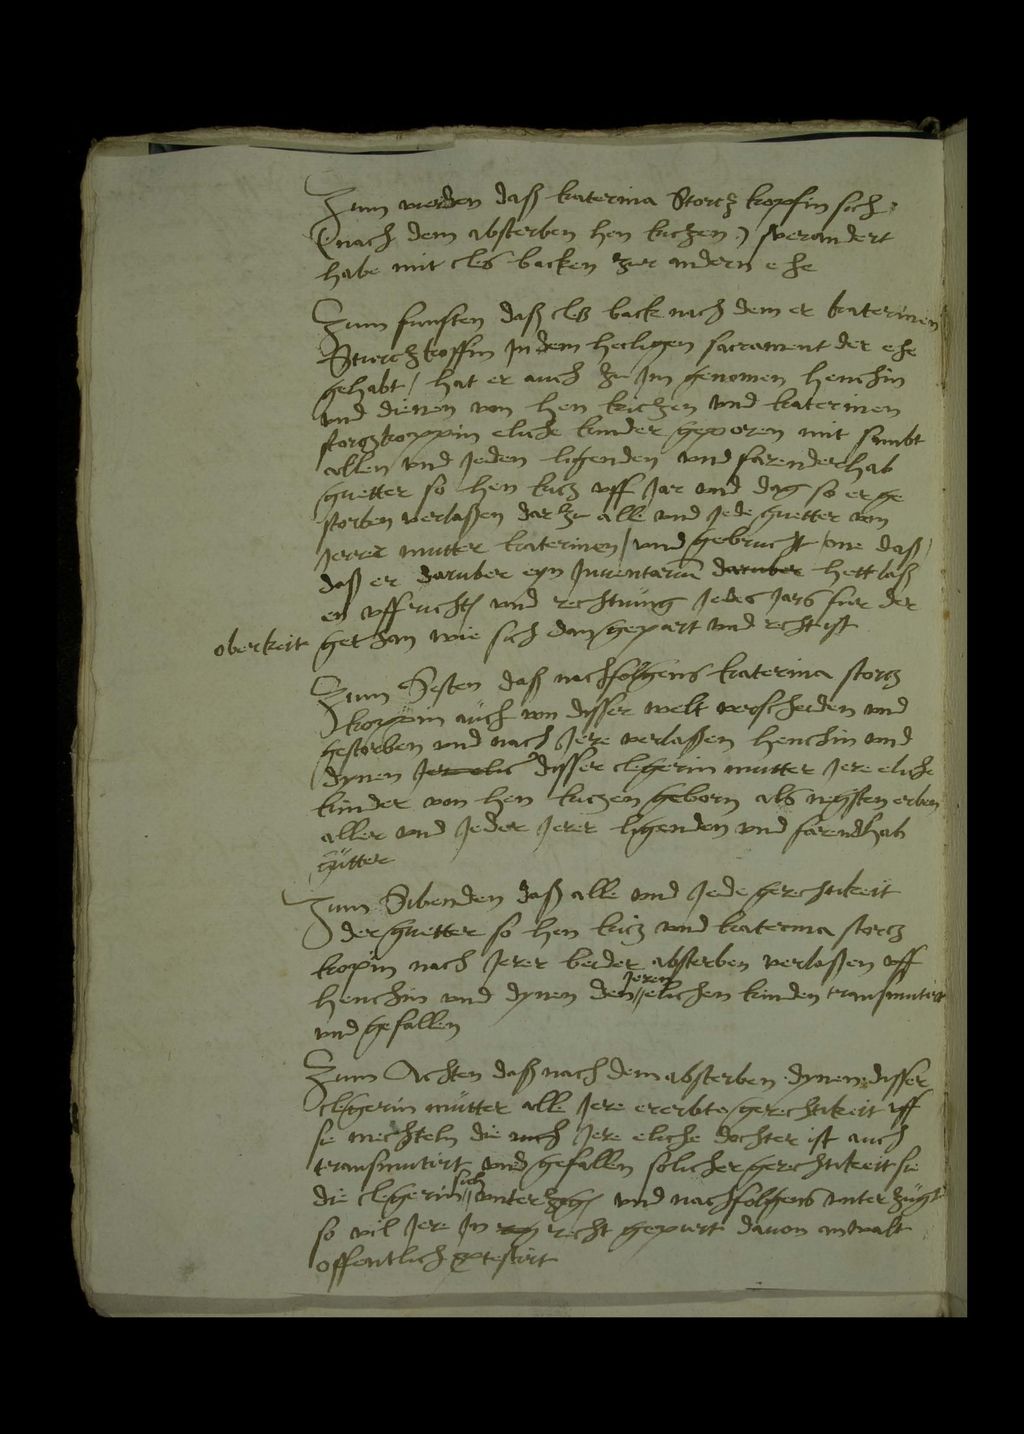 Zum vierden daß katerina Storcz kopfin sich
(nach dem absterben hen kiczen) verandert
habe mit cleß backen zur andern ehe
Zum funften daß cleß back nach dem er katerinen
Sturczkoffin In dem heiligen sacrament der ehe
gehabt / hat er auch zu Im genomen henchin
vnd dienen von hen kiczen vnd katerinen
storczkoppin eliche kinder geporen mit sambt
allen vnd Jeden ligenden vnd farender hab
guetter so hen kicz vff Jar vnd dag so er ge
storben verlaßen dar zu alle vnd Jede guetter von
Jerer mutter katerinen / vnd gebrucht / one daß /
daß er daruber eyn Inuentariu daruber hett laß
en vffrichten vnd rechnüng Jedes Jars fur der
oberkeit gethan wie sich dan gepurt vnd recht ist
Zum Sesten daß nachfolgens katerina storcz
koppin auch von disser welt verscheiden vnd
gestorben vnd nach Jere verlassen henchin vnd
dynen Jer elic disser clegerin mutter Jere eliche
kinder von hen kiczen geborn als negsten erben
aller vnd Jeder Jerer ligenden vnd farend hab
gütter
Zum Sibenden daß alle vnd Jede gerechtikeit
der guetter so hen kicz vnd katerina storcz
kopin nach Jerer beider absterben verlaßen vff
henchin vnd dynen den Jeren elichen kinden transmutirt
vnd gefallen
Zum Achten daß nach dem absterben dynen disser
clegerin mütter alle Jere ererbte gerechtikeit vff
sie mechteln die auch Jere eliche dochter ist auch
transmutirt vnd gefallen solicher gerechtikeit sie
die clegerin sich vnterzogen vnd nachfolgens vnterzügt
so vil Jere In recht gepurt dauon anwalt
offentlich protestirt